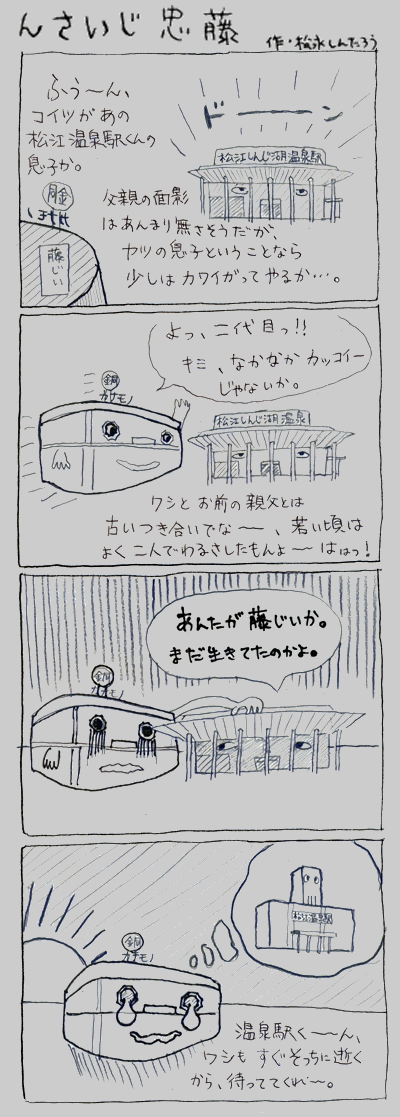 んさいじ忠藤
作・松永しんたろう
ドーーン
ふう〜ん、
コイツがあの
松江温泉駅くんの
息子か。
松江しんじ湖温泉駅
父親の面影
はあんまり無さそうだが、
ヤツの息子ということなら
少しはカワイがってやるか…。
藤じい
よっ、二代目っ!!
キミ、なかなかカッコイー
じゃないか。
銅
カナモノ
松江しんじ湖温泉
ワシとお前の親父とは
古いつき合いでな〜、若い頃は
よく二人でわるさしたもんよ〜ははっ!
あんたが藤じいか。
まだ生きてたのかよ。
銅
カナモノ
松江温泉駅
銅
カナモノ
温泉駅く〜ん、
ワシもすぐそっちに逝く
から、待っててくれ〜。